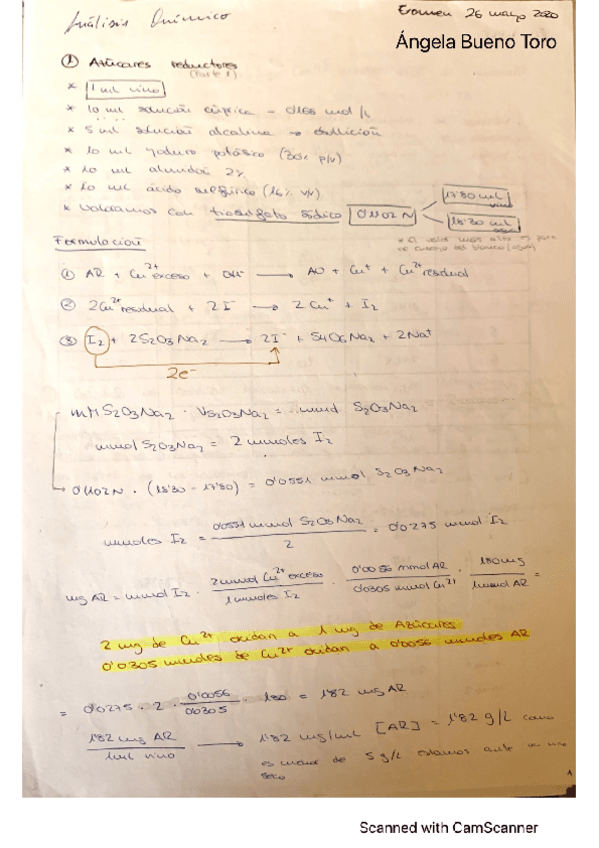 Análisis Químico
Examen 26 mayo 2020
Ángela Bueno Toro
① Azúcares reductores
(Parte 1)
* 1 ml vino
* 10 ml solución cúprica –  mol/L
* 5 ml solución alcalina → ebullición
* 10 ml yoduro potásico (30% p/v)
* 10 ml almidón 2%
* 10 ml ácido sulfúrico (16% v/v)
* Valoramos con tiosulfato sódico 0'1102 N
17'80 ml
18'30 ml
* El valor más alto es para
el blanco (agua)
Formulación
① AR + Cu²⁺ exceso + OH⁻ → AO + Cu⁺ + Cu²⁺ residual
② 2Cu²⁺ residual + 2I⁻ → 2Cu⁺ + I₂
③ I₂ + 2S₂O₃Na₂ → 2I⁻ + S₄O₆Na₂ + 2Na⁺
2e⁻
mM S₂O₃Na₂ · V S₂O₃Na₂ = mmol S₂O₃Na₂
mmol S₂O₃Na₂ = 2 mmoles I₂
0'1102 N · (18'30 - 17'80) = 0'0551 mmol S₂O₃Na₂
mmoles I₂ = 0'0551 mmol S₂O₃Na₂ / 2 = 0'0275 mmol I₂
mg AR = mmol I₂ · 2 mmol Cu²⁺ exceso / 1 mmoles I₂ · 0'0056 mmol AR / 0'0305 mmol Cu²⁺ · 180 mg / 1 mmol AR =
2 mg de Cu²⁺ oxidan a 1 mg de Azúcares
0'0305 mmoles de Cu²⁺ oxidan a 0'0056 mmoles AR
= 0'0275 · 2 · 0'0056 / 0'0305 · 180 = 1'82 mg AR
1'82 mg AR / 1 ml vino → 1'82 mg/ml [AR] = 1'82 g/L como
es menor de 5 g/L estamos ante un vino
seco
Scanned with CamScanner